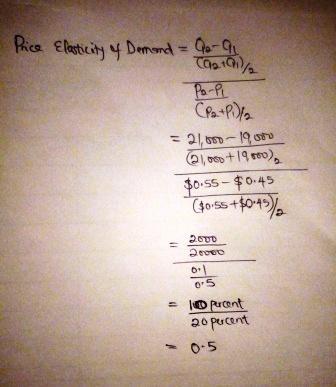 Price Elasticity of Demand = Q2-Q1
(Q2+Q1)/2
P2-P1
(P2+P1)/2
= 21,000-19,000
(21,000+19,000)/2
$0.55-$0.45
($0.55+$0.45)/2
= 2000
20000
0.1
0.5
= 10 percent
20 percent
= 0.5